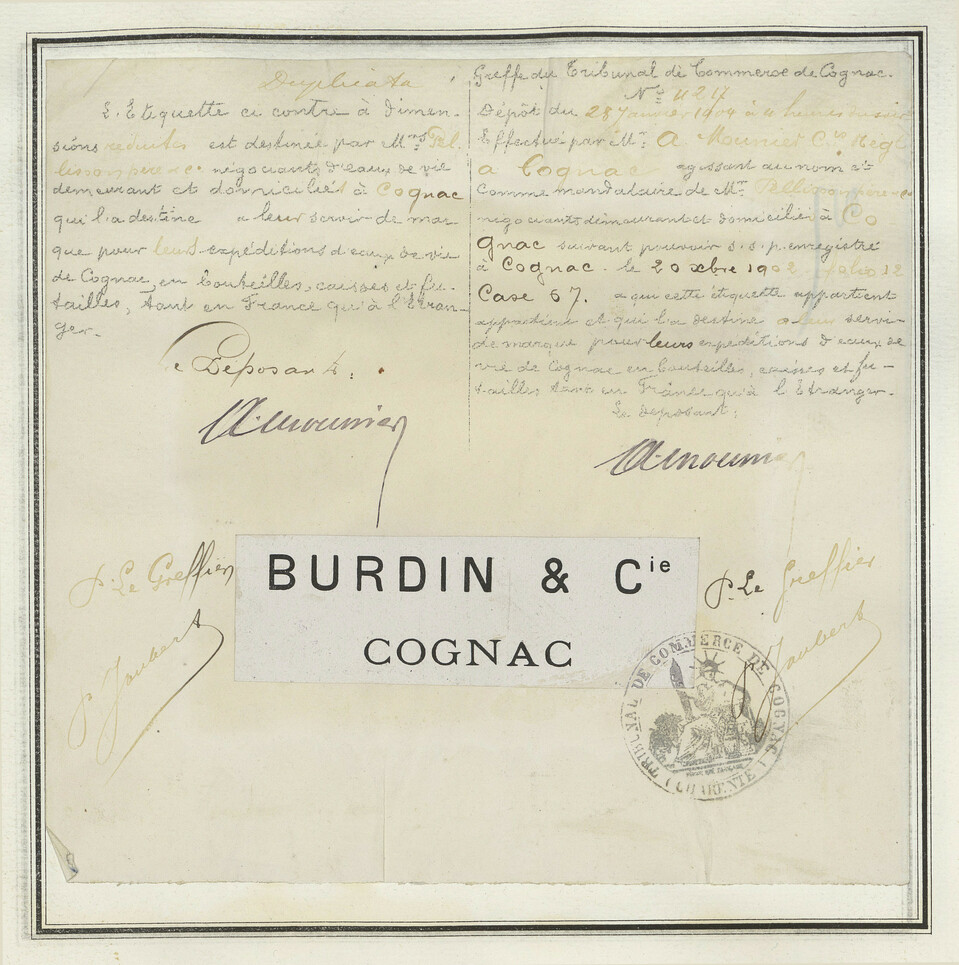 Duplicata
L'Etiquette ci contre à dimen-
sions réduites est destinée par Mrs Pel-
lisson père & Co négociants d'eaux de vie
demeurant et domiciliés à Cognac
qui l'a destine a leur servir de mar-
que pour leurs expéditions d'eaux de vie
de Cognac, en bouteilles, caisses et fu-
tailles, tant en France qu'à l'Etran-
ger.
Le Déposant:
A. Mounier
P. Le Greffier
P. Joubert
Greffe du Tribunal de Commerce de Cognac.
No
Dépôt du 28 Janvier 1904 à 4 heures du soir
Effectué par Mr A Mounier
a Cognac agissant au nom et
Comme mandataire de Mrs Pellisson père & Co
négociants demeurant et domiciliés à Co
gnac suivant pouvoir s.s.p. enregistré
à Cognac. le 20 xbre 1902 folio 12
Case 67. a qui cette étiquette appartient
appartient et qui l'a destine a leur servir
de marque pour leurs expéditions d'eaux de
vie de Cognac en bouteilles, caisses et fu-
tailles tant en France qu'à l'Etranger.
Le déposant:
A. Mounier
P. Le Greffier
P. Joubert
BURDIN & Cie
COGNAC
TRIBUNAL DE COMMERCE DE COGNAC
(CHARENTE)